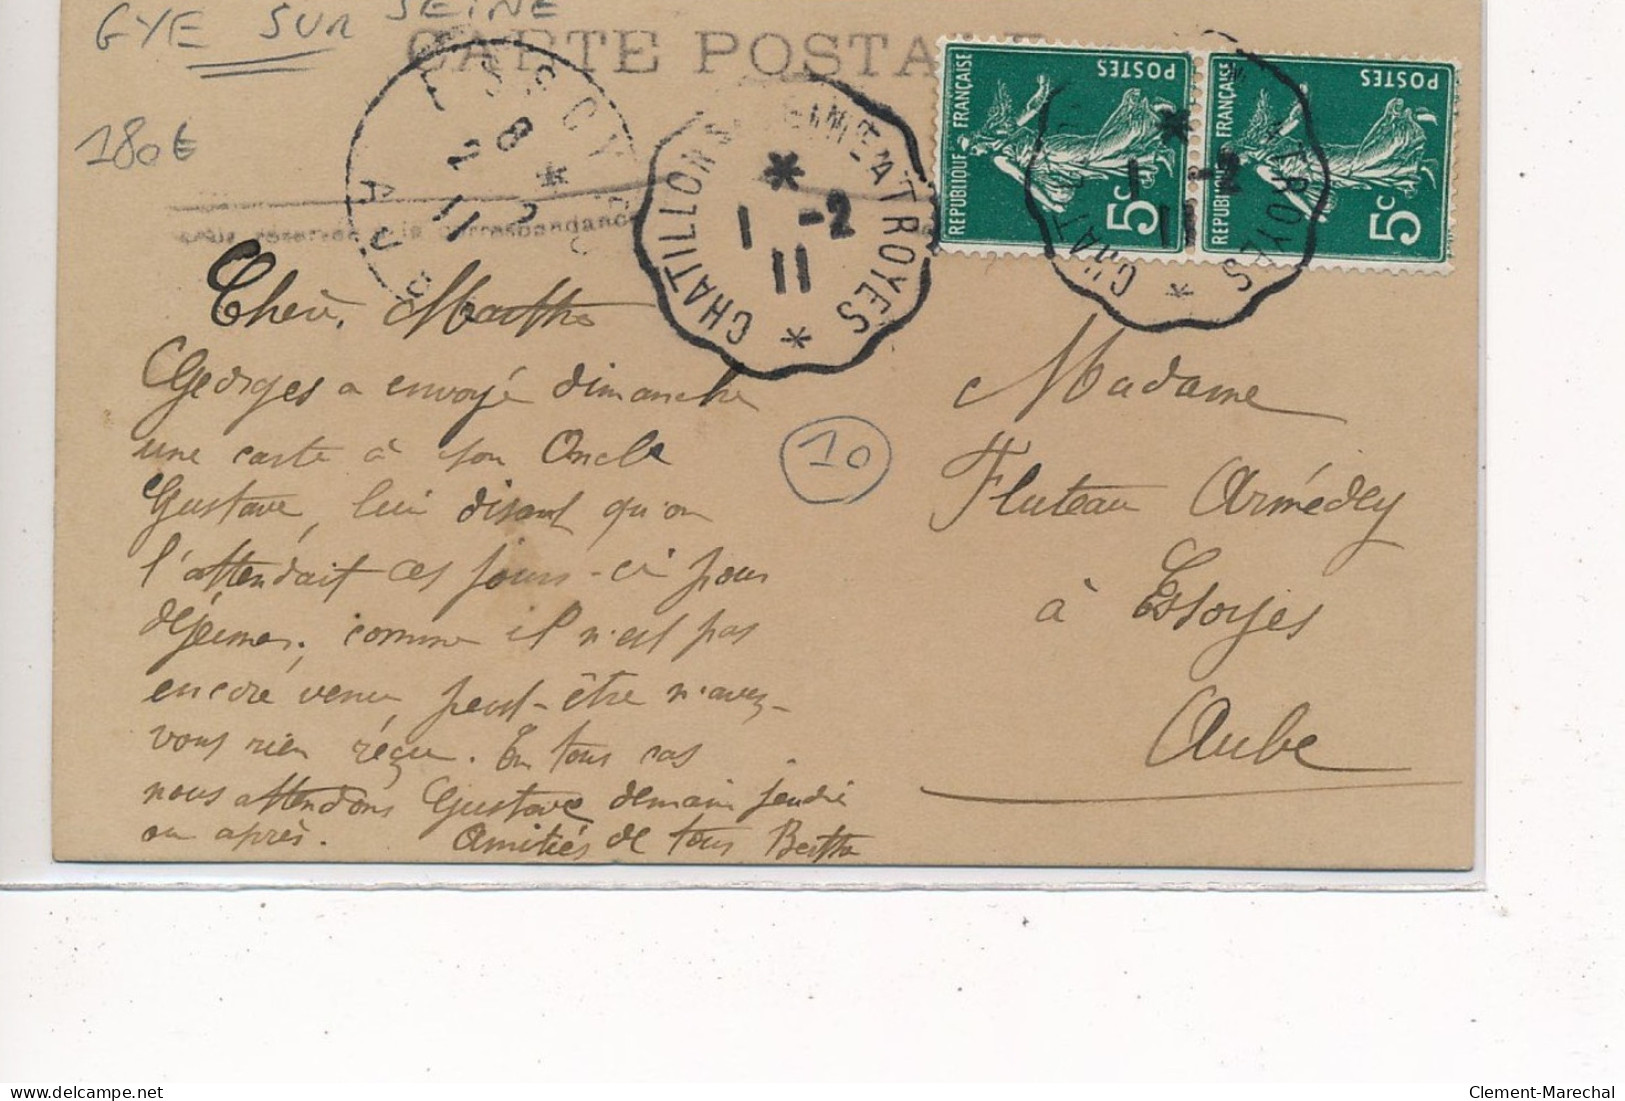 GYE SUR SEINE
CARTE POSTA
180€
CHATILLON S-SEINE A TROYES
1 -2
11
8
2 2
11
AUBE
RÉPUBLIQUE FRANÇAISE
POSTES
5c
RÉPUBLIQUE FRANÇAISE
POSTES
5c
CHAT
A TROYES
1 -2
11
la correspondance
Chère Marthe
Georges a envoyé dimanche
une carte à son Oncle
Gustave, lui disant qu'on
l'attendait ces jours-ci pour
déjeuner, comme il n'est pas
encore venu, peut-être n'avez-
vous rien réçu. En tous cas
nous attendons Gustave demain jeudi
ou après. Amitiés de tous Berthe
10
Madame
Fluteau Armédey
à Essoyes
Aube
delcampe.net
Clement-Marechal